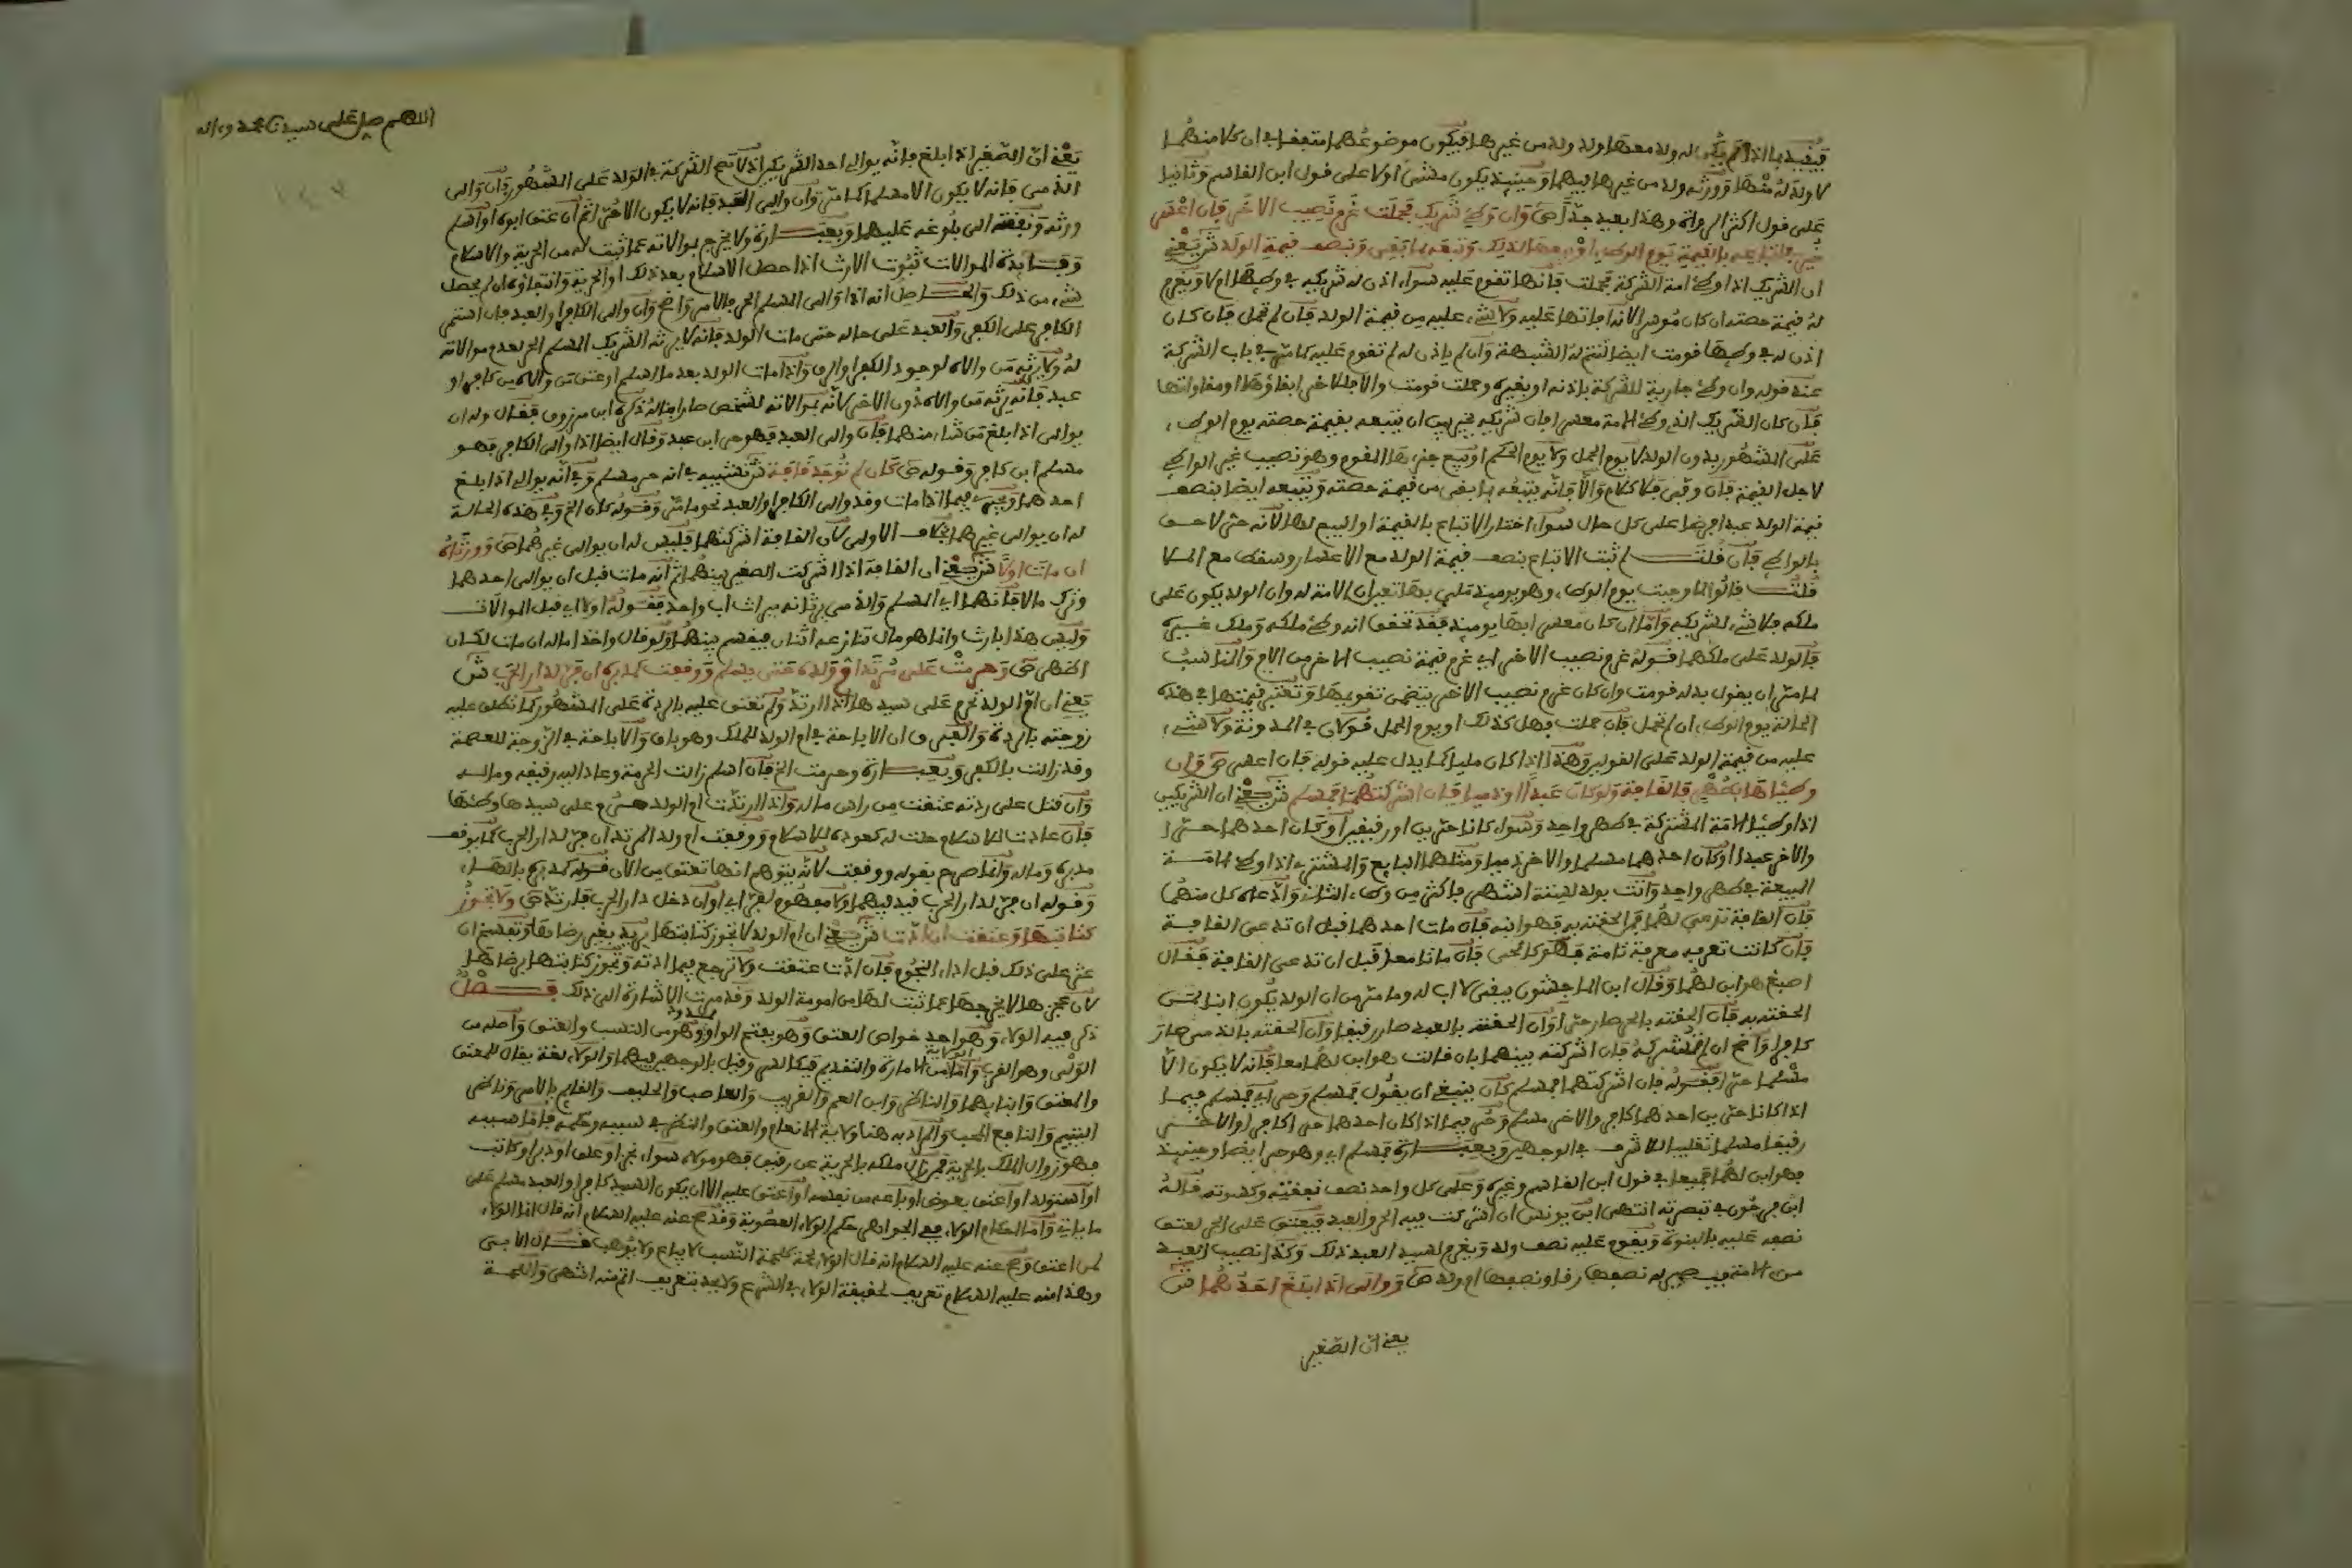 فيفيد بما اذا لم يكن له ولد معها او له ولد من غيرها فيكون موضوعهما متفقا في ان كلا منهما
لا ولد له منها وورثه ولد من غيرها فيهما وحينئذ يكون مشى اولا على قول ابن القاسم وثانيا
على قول اكثر الرواة وهذا بعيد جدا ص وان وطئ شريك فحملت غرم نصيب الاخر فان اعسر
خير في اتباعه بالقيمة يوم الوطء او بيعها لذلك وتبعه بما بقي وبنصف قيمة الولد ش يعني
ان الشريك اذا وطئ امة الشركة فحملت فانها تقوم عليه سواء اذن له شريكه في وطئها ام لا ويغرم
له قيمة حصته ان كان موسرا لانه افاتها عليه ولا شيء عليه من قيمة الولد فان لم تحمل فان كان
اذن له في وطئها قومت ايضا لتتم له الشبهة وان لم ياذن له لم تقوم عليه كما مر في باب الشركة
عند قوله وان وطئ جارية للشركة باذنه او بغيره وحملت قومت والا فللاخر ابقاؤها او مقاواتها
فان كان الشريك الذي وطئ الامة معسرا فان شريكه يخير بين ان يتبعه بقيمة حصته يوم الوطء
على المشهور بدون الولد لا يوم الحمل ولا يوم الحكم او يبيع جزءها المقوم وهو نصيب غير الواطئ
لاجل القيمة فان وفى فلا كلام والا فانه يتبعه بما بقي من قيمة حصته ويتبعه ايضا بنصف
قيمة الولد عبدا فرضا على كل حال سواء اختار الاتباع بالقيمة او البيع لها لانه حر لاحق
بالواطئ فان قلت لم ثبت الاتباع بنصف قيمة الولد مع الاعسار وسقط مع الملا
قلت قالوا لما وجبت يوم الوطء وهو يومئذ ملي بها تعين ان الامة له وان الولد يكون على
ملكه فلا شيء لشريكه واما ان كان معسرا بها يومئذ فقد تحقق انه وطئ ملكه وملك غيره
فالولد على ملكهما قوله غرم نصيب الاخر اي غرم قيمة نصيب الاخر من الام والمناسب
لما مر ان يقول بدله قومت وان كان غرم نصيب الاخر يتضمن تقويمها وتعتبر قيمتها في هذه
الحالة يوم الوطء ان لم تحمل فان حملت فهل كذلك او يوم الحمل قولان في المدونة ولا شيء
عليه من قيمة الولد على القولين وهذا اذا كان مليا كما يدل عليه قوله فان اعسر ص وان
وطئاها بطهر فالقافة ولو كان عبدا او ذميا فان اشركتهما فمسلم ش يعني ان الشريكين
اذا وطئا الامة المشتركة في طهر واحد وسواء كانا حرين او رقيقين او كان احدهما حرا
والاخر عبدا او كان احدهما مسلما والاخر ذميا ومثلهما البايع والمشتري اذا وطئ الامة
المبيعة في طهر واحد واتت بولد لستة اشهر فاكثر من وطء الثاني وادعاه كل منهما
فان القافة تدعى لهما فمن الحقته به فهو ابنه فان مات احدهما قبل ان تدعى القافة
فان كانت تعرفه معرفة تامة فهو كالحي فان ماتا معا قبل ان تدعى القافة فقال
اصبغ هو ابن لهما وقال ابن الماجشون يبقى لا اب له وما مر من ان الولد يكون ابنا لمن
الحقته به فان الحقته بالحر صار حرا وان الحقته بالعبد صار رقيقا وان الحقته بالذمي صار
كافرا واضح ان لم تشركه فان اشركته بينهما بان قالت هو ابن لهما معا فانه لا يكون الا
مسلما حرا فقوله فان اشركتهما فمسلم كان ينبغي ان يقول فمسلم وحر اي فمسلم فيما
اذا كانا حرين احدهما كافر والاخر مسلم وحر فيما اذا كان احدهما حرا كافرا والاخر
رقيقا مسلما تغليبا للاشرف في الوجهين وبعبارة فمسلم اي وهو حر ايضا وحينئذ
فهو ابن لهما جميعا في قول ابن القاسم وغيره وعلى كل واحد نصف نفقته وكسوته قاله
ابن فرحون في تبصرته انتهى ابن يونس ان اشركت فيه الحر والعبد فيعتق على الحر لعتق
نصفه عليه بالبنوة ويقوم عليه نصف ولده ويغرم لسيد العبد ذلك وكذا نصيب العبد
من الامة فيصير له نصفها رقا ونصفها ام ولد ص ووالى اذا بلغ احدهما ش
يعني ان الصغير
اللهم صل على سيدنا محمد وءاله
يعني ان الصغير اذا بلغ فانه يوالي احد الشريكين اذ لا تصح الشركة في الولد على المشهور وان والى
الذمي فانه لا يكون الا مسلما كما مر وان والى العبد فانه لا يكون الا حرا ثم ان عتق ابوه او اسلم
ورثه ونفقته الى بلوغه عليهما وبعبارة ولا يخرج بموالاته عما ثبت له من الحرية والاسلام
وفايدة الموالات ثبوت الارث اذا حصل الاسلام بعد ذلك او الحرية وانتفاؤه ان لم يحصل
شيء من ذلك والحاصل انه اذا والى المسلم الحر فالامر واضح وان والى الكافر او العبد فان استمر
الكافر على الكفر والعبد على حاله حتى مات الولد فانه لا يرثه الشريك المسلم الحر لعدم موالاته
له ولا يرثه من والاه لوجود الكفر او الرق واذا مات الولد بعد ما اسلم او عتق من والاه من كافر او
عبد فانه يرثه من والاه دون الاخر لانه بموالاته لشخص صار ابنا له ذكره ابن مرزوق فقال وله ان
يوالي اذا بلغ من شاء منهما فان والى العبد فهو حر ابن عبد وقال ايضا اذا والى الكافر فهو
مسلم ابن كافر وقوله ص كان لم توجد قافة ش تشبيه في انه حر مسلم وفي انه يوالي اذا بلغ
احدهما ويجري فيما اذا مات وقد والى الكافر او العبد نحو ما مر وقوله كان الخ وفي هذه الحالة
له ان يوالي غيرهما بخلاف الاولى لان القافة اشركتهما فليس له ان يوالي غيرهما ص وورثاه
ان مات اولا ش يعني ان القافة اذا اشركت الصغير بينهما ثم انه مات قبل ان يوالي احدهما
وترك مالا فانهما اي المسلم والذمي يرثانه ميراث اب واحد فقوله اولا اي قبل الموالات
وليس هذا بارث وانما هو مال تنازعه اثنان فيقسم بينهما ولو قال واخذا ماله ان مات لكان
اظهر ص وحرمت على مرتد ام ولده حتى يسلم ووقفت كمدبره ان فر لدار الحرب ش
يعني ان ام الولد تحرم على سيدها اذا ارتد ولم تعتق عليه بالردة على المشهور كما تطلق عليه
زوجته بالردة والفرق ان الاباحة في ام الولد للملك وهو باق والاباحة في الزوجة للعصمة
وقد زالت بالكفر وبعبارة وحرمت الخ فان اسلم زالت الحرمة وعاد اليه رقيقه وماله
وان قتل على ردته عتقت من راس ماله واذا ارتدت ام الولد حرم على سيدها وطئها
فان عادت للاسلام حلت له كعوده للاسلام ووقفت ام ولد المرتد ان فر لدار الحرب كما يوقف
مدبره وماله وانما صرح بقوله ووقفت لانه يتوهم انها تعتق من الان قوله كمدبره بالهاء
وقوله ان فر لدار الحرب قيد فيهما ولا مفهوم لفر اي او ان دخل دار الحرب فارتد ص ولا تجوز
كتابتها وعتقت ان ادت ش يعني ان ام الولد لا تجوز كتابتها يريد بغير رضاها وتفسخ ان
عثر على ذلك قبل اداء النجوم فان ادت عتقت ولا ترجع فيما ادته وتجوز كتابتها برضاها
لان عجزها لا يخرجها عما ثبت لها من امومة الولد وقد مرت الاشارة الى ذلك فصل
ذكر فيه الولاء وهو احد خواص العتق وهو بفتح الواو ممدود وهو من النسب والعتق واصله من
الولي وهو القرب واما من الامارة والتقديم فبكسر وقيل بالوجهين فيهما والولاء لغة يقال للمعتق
والمعتق وابنايهما والناصر وابن العم والقريب والعاصب والحليف والقايم بالامر وناظر
اليتيم والنافع المحب والمراد به هنا ولاية الانعام والعتق والنظر في سببه وحكمه فاما سببه
فهو زوال الملك بالحرية فمن زال ملكه بالحرية عن رقيق فهو مولاه سواء نجز او علق او دبر او كاتب
او استولد او اعتق بعوض او باعه من نفسه او اعتق عليه الا ان يكون السيد كافرا والعبد مسلم على
ما ياتي واما احكام الولاء ففي الجواهر حكم الولاء العصوبة وقد صح عنه عليه السلام انه قال انما الولاء
لمن اعتق وصح عنه عليه السلام انه قال الولاء لحمة كلحمة النسب لا يباع ولا يوهب قال الابي
وهذا منه عليه السلام تعريف لحقيقة الولاء في الشرع ولا يجد تعريف اتم منه انتهى واللحمة